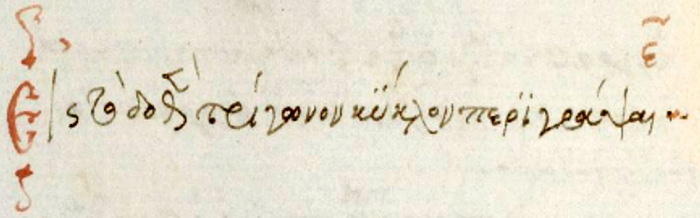 ε̄
Εἰς τὸ δοθὲν τρίγωνον κΰκλον περϊγράψαι